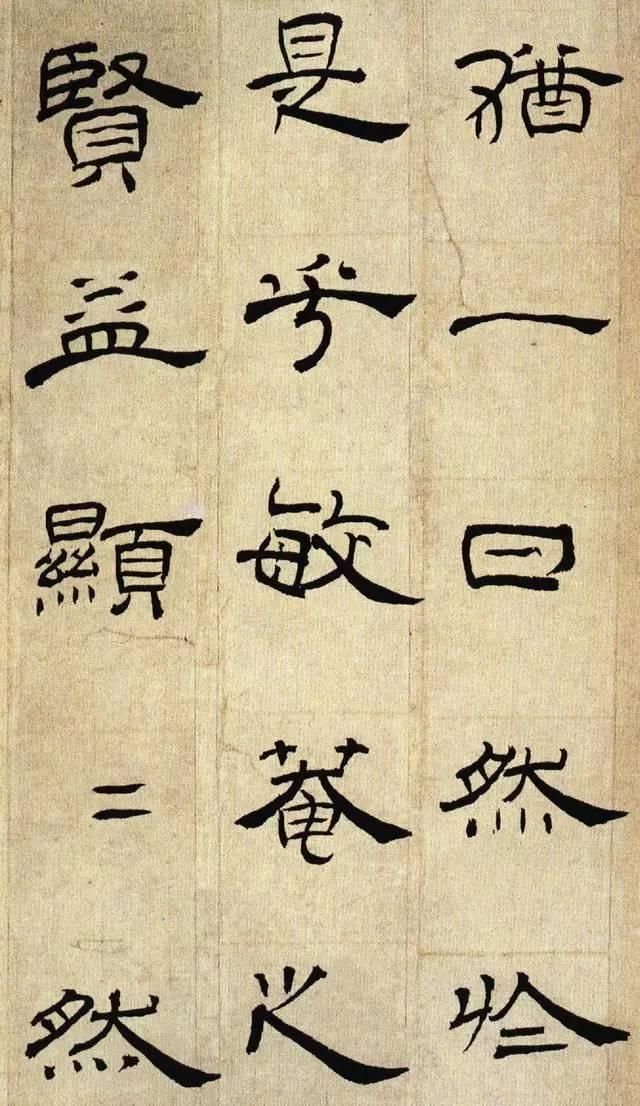 猶一日然於
是乎敏菴之
賢益顯二然